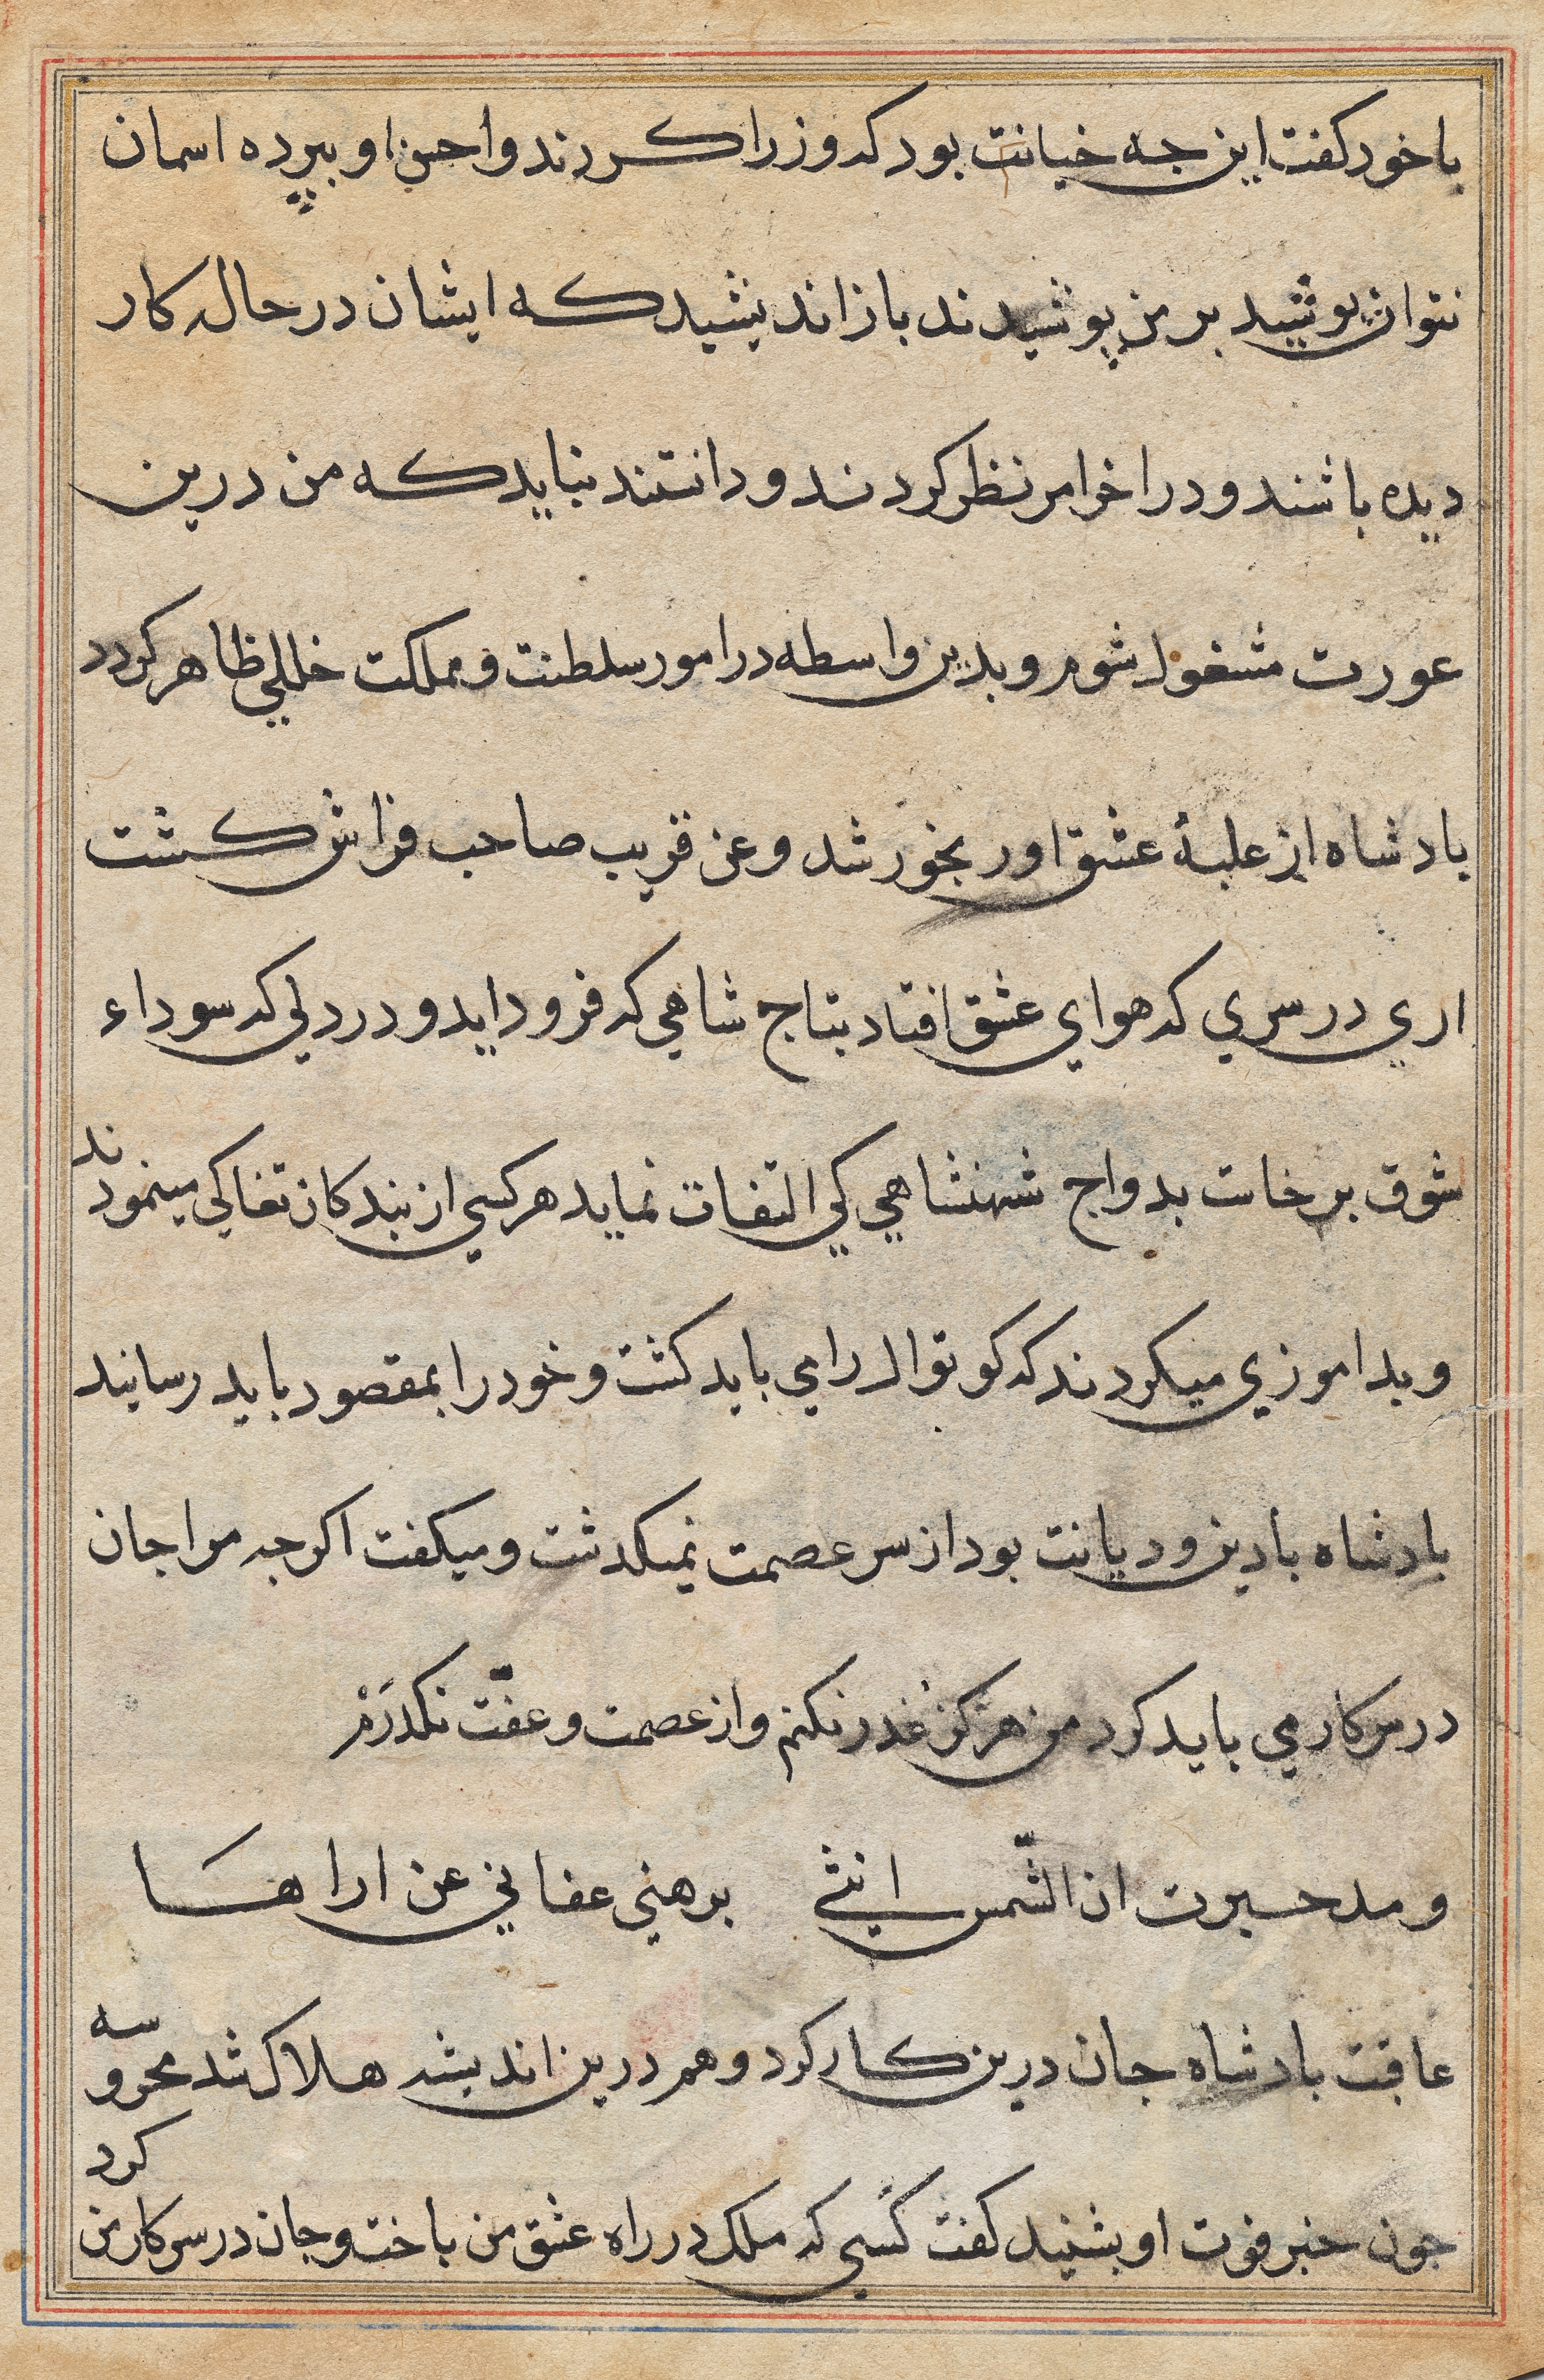 با خود کفت این جه خیانت بود که وزرا کردند و احسن او ببرده اسمان
نتوان پوشید بر من پوشیدند باز اندیشید که ایشان در حال کار
دیده باشند و در اخر امر نظر کردند و دانستند نباید که من درین
عورت مشغول شوم و بدین واسطه در امور سلطنت و مملکت خللی ظاهر کردد
بادشاه از غلبۀ عشق او رنجور شد و عن قریب صاحب فراش کشت
اری در سری که هوای عشق افتاد بتاج شاهی که فرود اید و در دلی که سوداء
شوق برخاست بدواج شهنشاهی کی التفات نماید هر کسی از بندکان تفاکی مینمودند
و بداموزی میکردند که کوتوال را می باید کشت و خود را بمقصود باید رسانید
بادشاه با دین و دیانت بود از سر عصمت نمیکدشت و میکفت اکرجه مرا جان
درین کار می باید کرد من هرکز غدر نکنم و از عصمت و عفّت نکدرم
و مد حسرت ان الشّمس انثی برهنی عفانی عن اراها
عاقبت بادشاه جان درین کار کرد و هم درین اندیشه هلاک شد محروسه
جون خبر فوت او بشنید کفت کسی که ملک در راه عشق من باخت و جان در سر کار من کرد